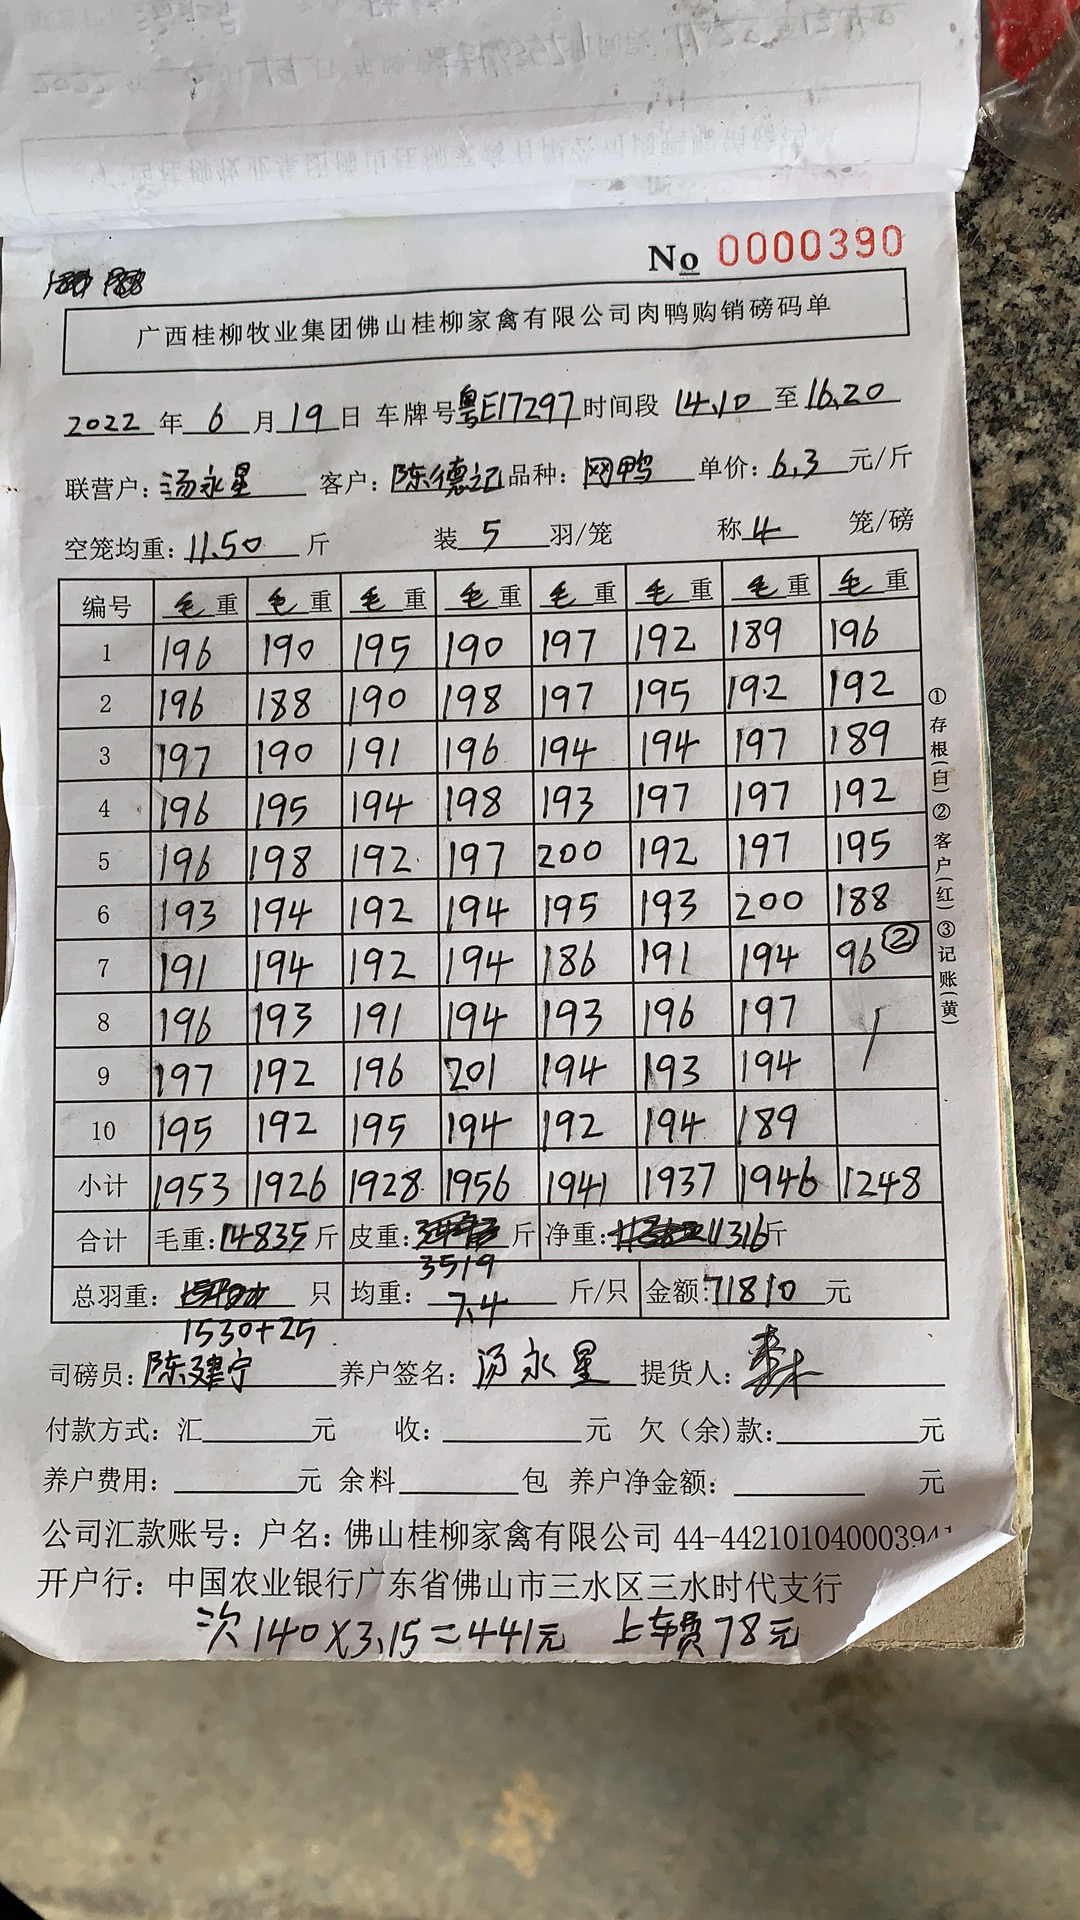 No 0000390
广西桂柳牧业集团佛山桂柳家禽有限公司肉鸭购销磅码单
2022 年 6 月 19 日 车牌号 粤E17297 时间段 14.10 至 16.20
联营户: 汤永星 客户: 陈德记 品种: 网鸭 单价: 6.3 元/斤
空笼均重: 11.50 斤 装 5 羽/笼 称 4 笼/磅
编号 毛重 毛重 毛重 毛重 毛重 毛重 毛重 毛重
1 196 190 195 190 197 192 189 196
2 196 188 190 198 197 195 192 192
3 197 190 191 196 194 194 197 189
4 196 195 194 198 193 197 197 192
5 196 198 192 197 200 192 197 195
6 193 194 192 194 195 193 200 188
7 191 194 192 194 186 191 194 96 ②
8 196 193 191 194 193 196 197
9 197 192 196 201 194 193 194
10 195 192 195 194 192 194 189
小计 1953 1926 1928 1956 1941 1937 1946 1248
合计 毛重: 14835 斤 皮重: 3519 斤 净重: 11316 斤
总羽重: 1530+25 只 均重: 7.4 斤/只 金额: 71810 元
司磅员: 陈建宁 养户签名: 汤永星 提货人:
付款方式: 汇 元 收: 元 欠（余)款: 元
养户费用: 元 余料 包 养户净金额: 元
公司汇款账号: 户名: 佛山桂柳家禽有限公司 44-442101040003941
开户行: 中国农业银行广东省佛山市三水区三水时代支行
次 140×3.15=441元 上车费78元
①存根(白)②客户(红)③记账(黄)